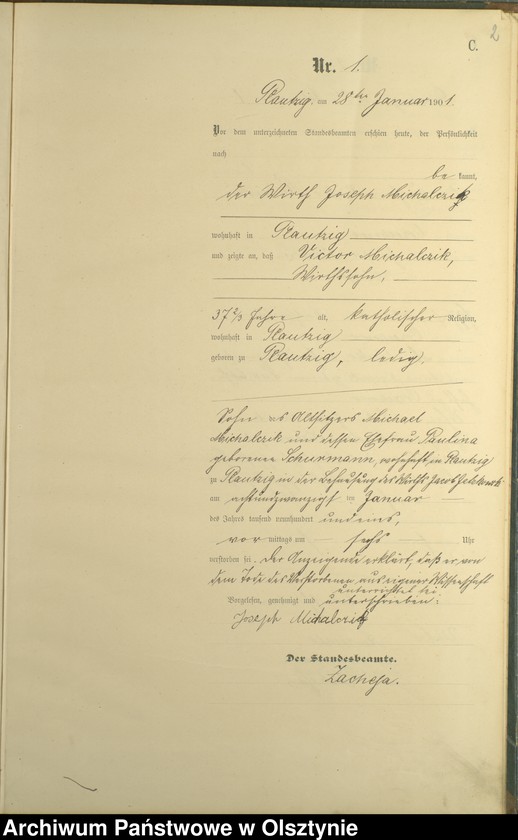 2
C.
Nr. 1.
Plautzig am 28ten Januar 1901.
Vor dem unterzeichneten Standesbeamten erschien heute, der Persönlichkeit
nach
be kannt,
der Wirth Joseph Michalczik
wohnhaft in Plautzig
und zeigte an, daß Victor Michalczik,
Wirthssohn,
37 2/3 Jahre alt, katholischer Religion,
wohnhaft in Plautzig
geboren zu Plautzig, ledig.
Sohn es Altsitzers Michael
Michalczik und dessen Ehefrau Paulina
geborenen Schurmann, wohnhaft in Plautzig
zu Plautzig in der Behausung des Wirths Jacob
am achtundzwanzigst en Januar
des Jahrs tausend neunhundert und eins,
vor mittags um sechs Uhr
verstorben sei. Der Anzeigende erklärt, daß er von
dem Tode des Verstorbenen aus eigener Wissenschaft
unterrichtet sei.
Vorgelesen, genehmigt und unterschrieben:
Joseph Michalczik
Der Standesbeamte.
Zacheja.
Archiwum Państwowe w Olsztynie